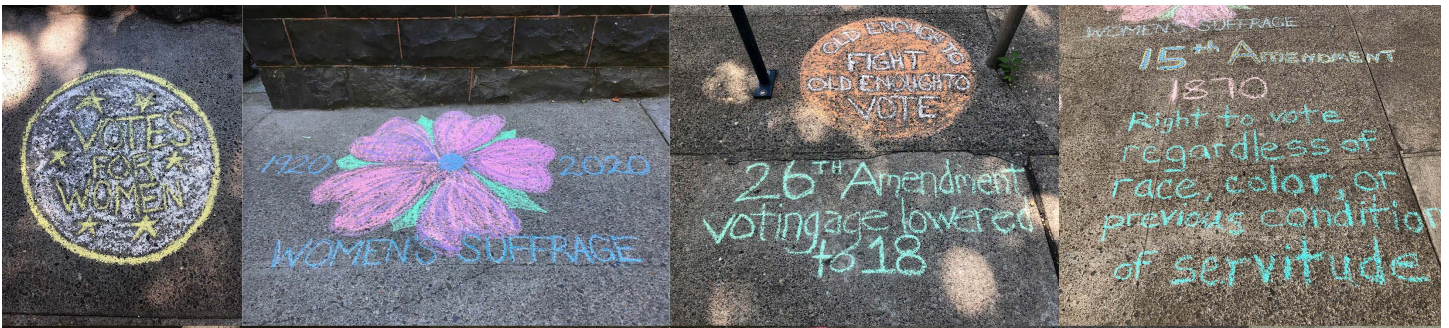 VOTES
FOR
WOMEN
1920 2020
WOMEN'S SUFFRAGE
OLD ENOUGH TO
FIGHT
OLD ENOUGH TO
VOTE
26TH Amendment
voting age lowered
to 18
WOMEN'S SUFFRAGE
15th AMENDMENT
1870
Right to vote
regardless of
race, color, or
previous condition
of servitude